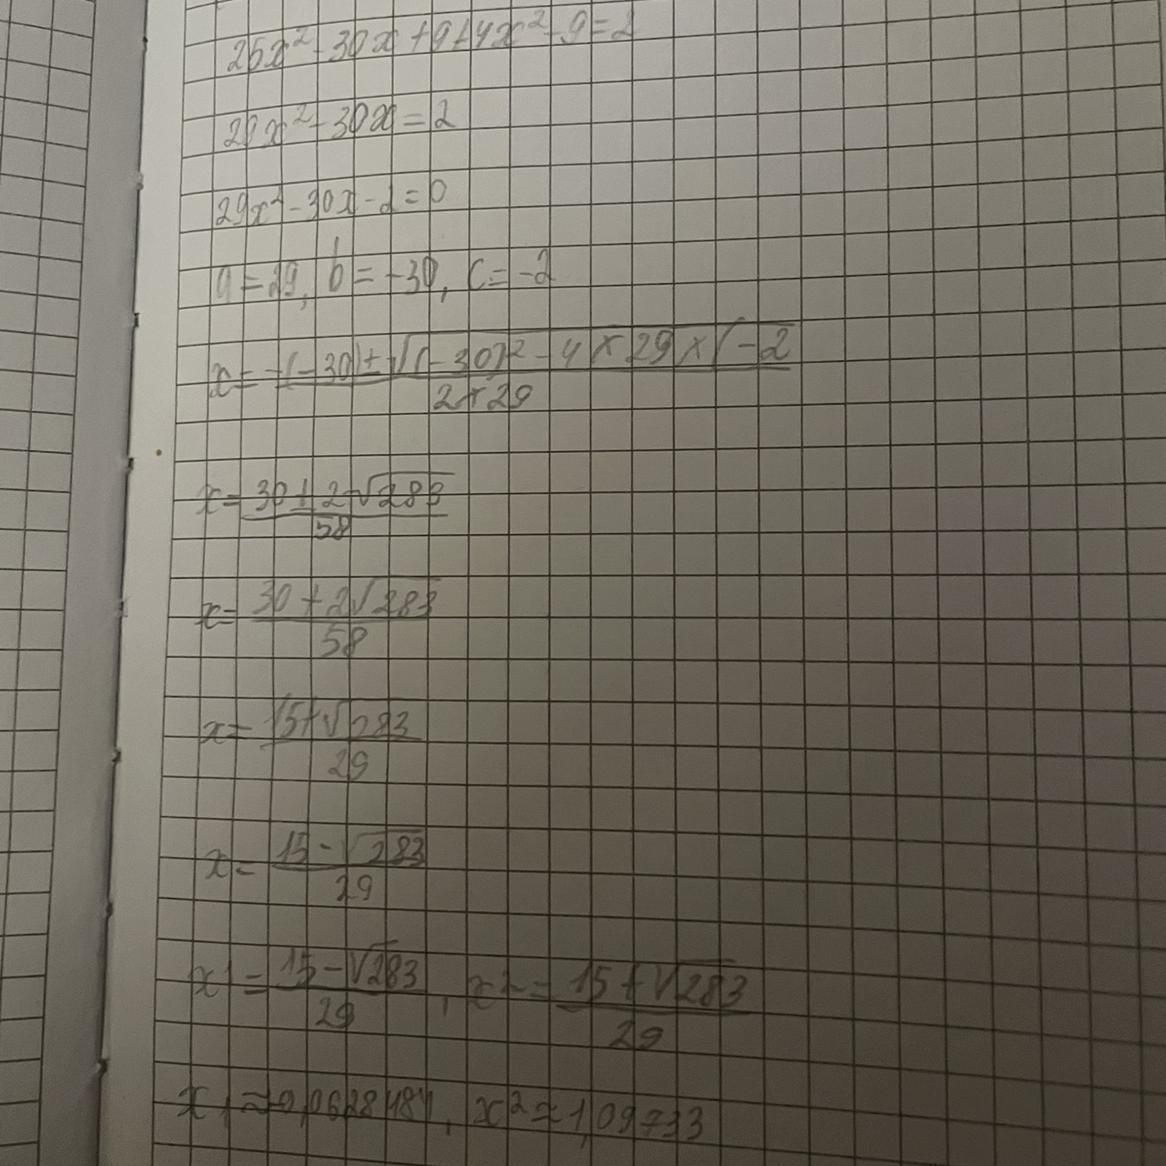 25x² - 30x + 9 + 4x² - 9 = 2
29x² - 30x = 2
29x² - 30x - 2 = 0
a = 29, b = -30, c = -2
x = -(-30) ± √(-30)² - 4 × 29 × (-2
2 × 29
x = 30 ± 2√283
58
x = 30 + 2√283
58
x = 15 + √283
29
x = 15 - √283
29
x1 = 15 - √283 , x2 = 15 + √283
29 29
x1 ≈ -0,0628484, x2 ≈ 1,09733